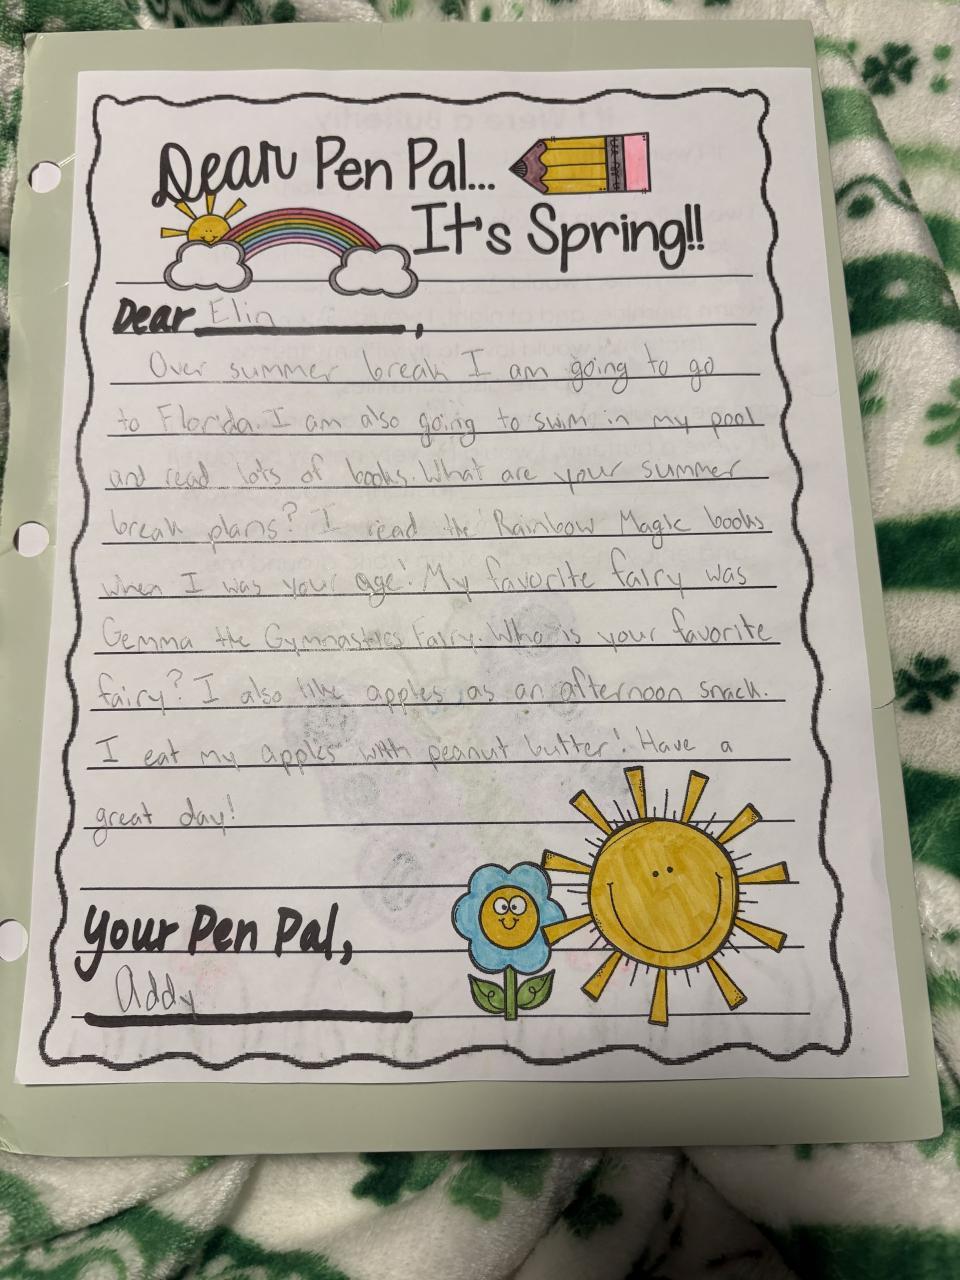 Dear Pen Pal...
It's Spring!!
Dear Elin,
Over summer break I am going to go
to Florida. I am also going to swim in my pool
and read lots of books. What are your summer
break plans? I read the Rainbow Magic books
when I was your age! My favorite fairy was
Gemma the Gymnastics Fairy. Who is your favorite
fairy? I also like apples as an afternoon snack.
I eat my apples with peanut butter! Have a
great day!
Your Pen Pal,
Addy